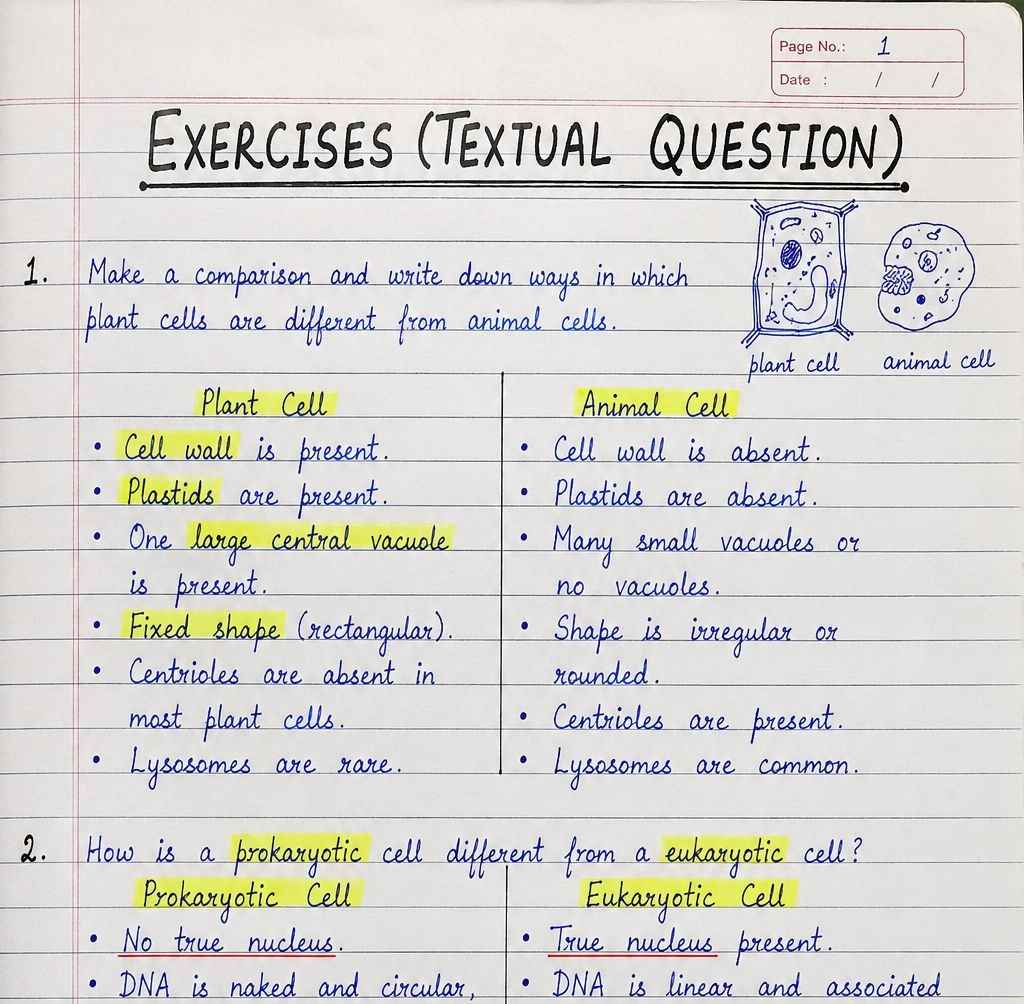 Page No.: 1
Date : / /
EXERCISES (TEXTUAL QUESTION)
1. Make a comparison and write down ways in which
plant cells are different from animal cells.
plant cell animal cell
Plant Cell
• Cell wall is present.
• Plastids are present.
• One large central vacuole
is present.
• Fixed shape (rectangular).
• Centrioles are absent in
most plant cells.
• Lysosomes are rare.
Animal Cell
• Cell wall is absent.
• Plastids are absent.
• Many small vacuoles or
no vacuoles.
• Shape is irregular or
rounded.
• Centrioles are present.
• Lysosomes are common.
2. How is a prokaryotic cell different from a eukaryotic cell?
Prokaryotic Cell
• No true nucleus.
• DNA is naked and circular,
Eukaryotic Cell
• True nucleus present.
• DNA is linear and associated